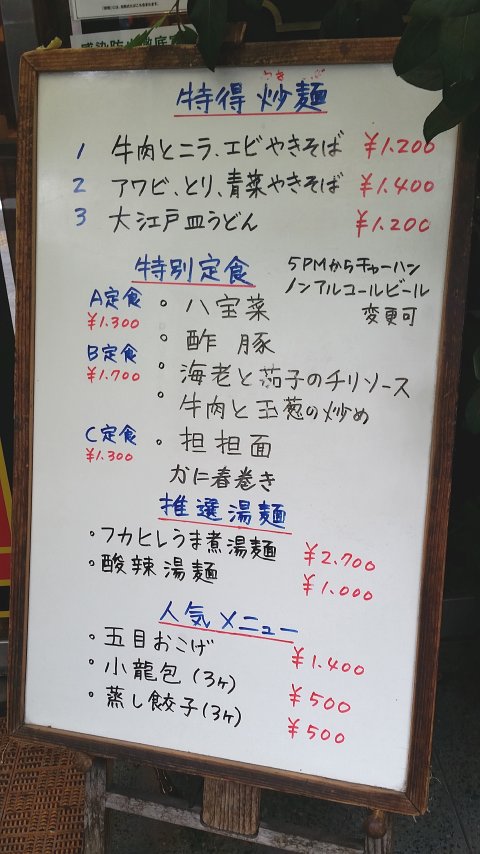 感染防止徹底宣
やき そば
特得 炒麺
1 牛肉とニラ、エビやきそば ¥1.200
2 アワビ、とり、青菜やきそば ¥1.400
3 大江戸皿うどん ¥1.200
特別定食
5PMからチャーハン
ノンアルコールビール
変更可
A定食 ・八宝菜
¥1.300
・酢豚
B定食
¥1.700
・海老と茄子のチリソース
・牛肉と玉葱の炒め
C定食 ・担担面
¥1.300
かに春巻き
推選湯麺
・フカヒレうま煮湯麺 ¥2.700
・酸辣湯麺 ¥1.000
人気メニュー
・五目おこげ ¥1.400
・小龍包(3ヶ) ¥500
・蒸し餃子(3ヶ) ¥500